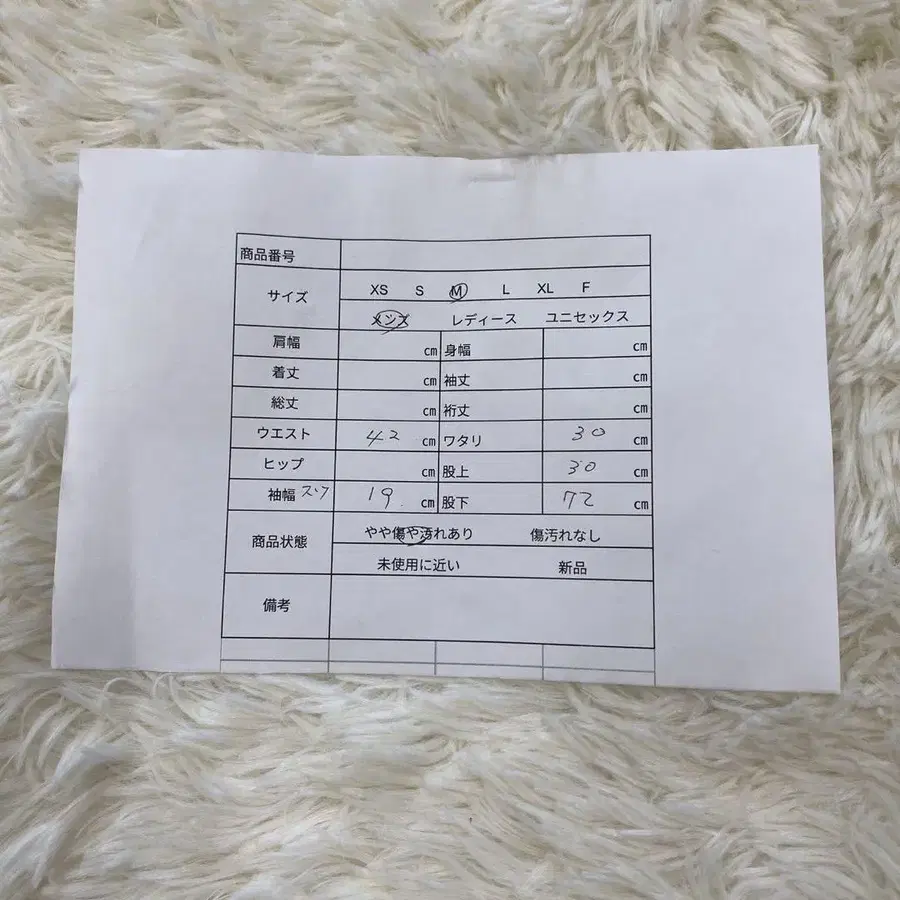 商品番号
サイズ XS S M L XL F
メンズ レディース ユニセックス
肩幅 cm 身幅 cm
着丈 cm 袖丈 cm
総丈 cm 裄丈 cm
ウエスト 42 cm ワタリ 30 cm
ヒップ cm 股上 30 cm
袖幅 スソ 19 cm 股下 72 cm
商品状態 やや傷や汚れあり 傷汚れなし
未使用に近い 新品
備考